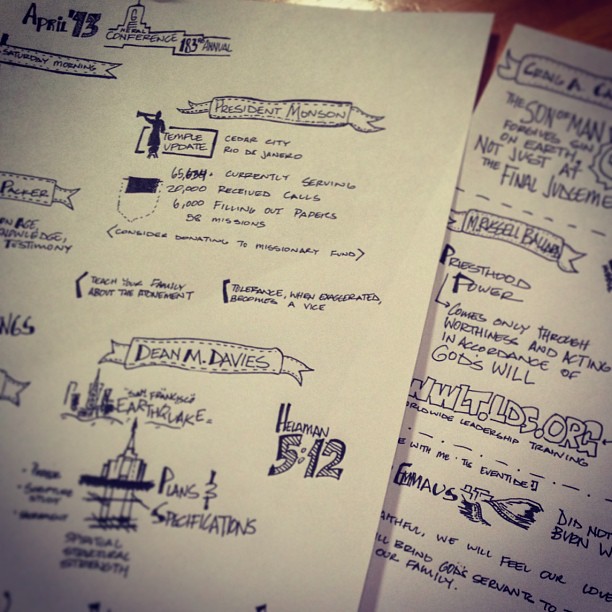 APRIL '13
GENERAL
CONFERENCE
183RD ANNUAL
SATURDAY MORNING
PRESIDENT MONSON
TEMPLE
UPDATE
CEDAR CITY
RIO DE JANERO
65,634 CURRENTLY SERVING
20,000 RECEIVED CALLS
6,000 FILLING OUT PAPERS
58 MISSIONS
<CONSIDER DONATING TO MISSIONARY FUND>
PACKER
AGE,
KNOWLEDGE,
TESTIMONY
TEACH YOUR FAMILY
ABOUT THE ATONEMENT
TOLERANCE, WHEN EXAGGERATED,
BECOMES A VICE
NGS
DEAN M. DAVIES
"SAN FRANCISCO
EARTHQUAKE"
HELAMAN
5:12
PRAYER
SCRIPTURE
STUDY
PLANS &
SPECIFICATIONS
SPIRITUAL
STRUCTURAL
STRENGTH
CRAIG A. CA
THE SON OF MAN
FORGIVES SIN
ON EARTH,
NOT JUST AT
THE FINAL JUDGEME
M. RUSSELL BALLARD
PRIESTHOOD
POWER
COMES ONLY THROUGH
WORTHINESS AND ACTING
IN ACCORDANCE OF
GOD'S WILL
WWLT.LDS.ORG
ORLDWIDE LEADERSHIP TRAINING
E WITH ME · TIS EVENTIDE
EMMAUS
DID NOT
BURN W
AITHFUL, WE WILL FEEL OUR LOVE
LL BRING GOD'S SERVANTS TO
OUR FAMILY.